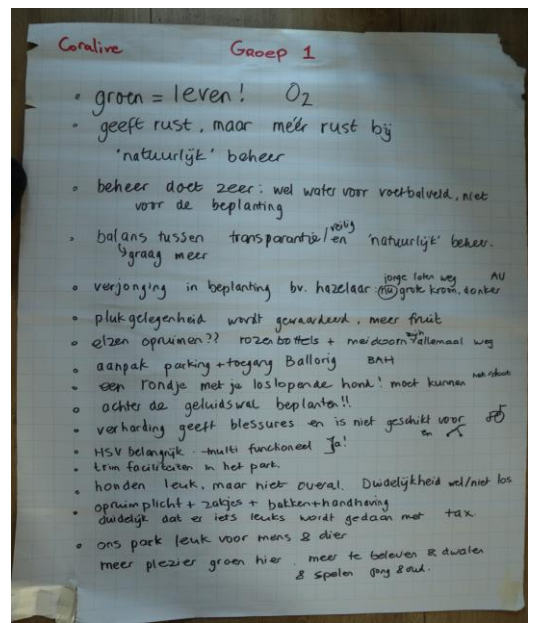 Coralive Groep 1
• groen = leven! O2
• geeft rust, maar méér rust bij
'natuurlijk' beheer
• beheer doet zeer: wel water voor voetbalveld, niet
voor de beplanting
• balans tussen transparantie/en veilig 'natuurlijk' beheer.
↳graag meer
• verjonging in beplanting bv. hazelaar: jonge loten weg AU
nu grote krom, donker
• plukgelegenheid wordt gewaardeerd, meer fruit
• elzen opruimen?? rozenbottels + meidoorn zijn allemaal weg
• aanpak parking + toegang Ballorig BAH
• een rondje met je loslopende hond! moet kunnen
• achter de geluidswal beplanten!!
• verharding geeft blessures en is niet geschikt voor
en
• HSV belangrijk - multi functioneel Ja!
• trim faciliteiten in het park.
• honden leuk, maar niet overal. Duidelijkheid wel/niet los
• opruimplicht + zakjes + bakken + handhaving
duidelijk dat er iets leuks wordt gedaan met tax.
• ons park leuk voor mens & dier
meer plezier groen hier. meer te beleven & dwalen
& spelen jong & oud.